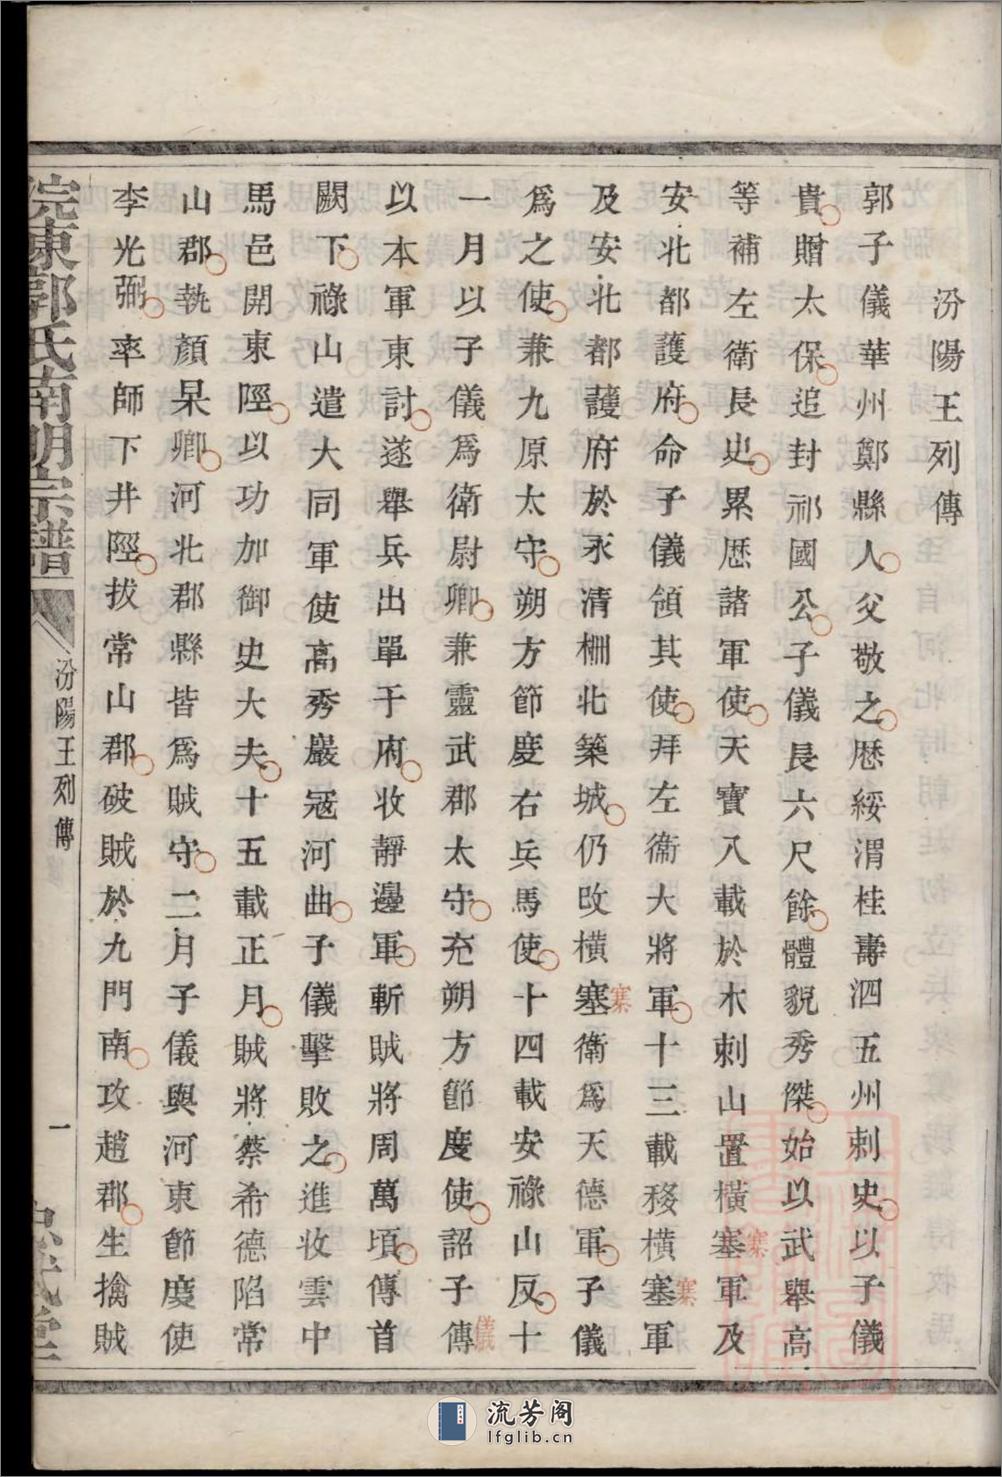 汾陽王列傳
郭子儀華州鄭縣人父敬之歷綏渭桂壽泗五州剌史以子儀
貴贈太保追封祁國公子儀長六尺餘體貌秀傑始以武舉高
等補左衛長史累歷諸軍使天寶八載於木剌山置橫塞軍及
寨
安北都護府命子儀領其使拜左衞大將軍十三載移橫塞軍
寨
及安北都護府於永清柵北築城仍改橫塞衛爲天德軍子儀
寨
爲之使兼九原太守朔方節度右兵馬使十四載安祿山反十
一月以子儀爲衛尉卿兼靈武郡太守充朔方節度使詔子傳
儀
以本軍東討遂舉兵出單于府收靜邊軍斬賊將周萬頃傳首
闕下祿山遣大同軍使高秀巖冦河曲子儀擊敗之進收雲中
馬邑開東陘以功加御史大夫十五載正月賊將蔡希德陷常
山郡執顏杲卿河北郡縣皆爲賊守二月子儀與河東節度使
李光弼率師下井陘拔常山郡破賊於九門南攻趙郡生擒賊
皖東郭氏南明宗譜
汾陽王列傳
一
流芳阁
lfglib.cn